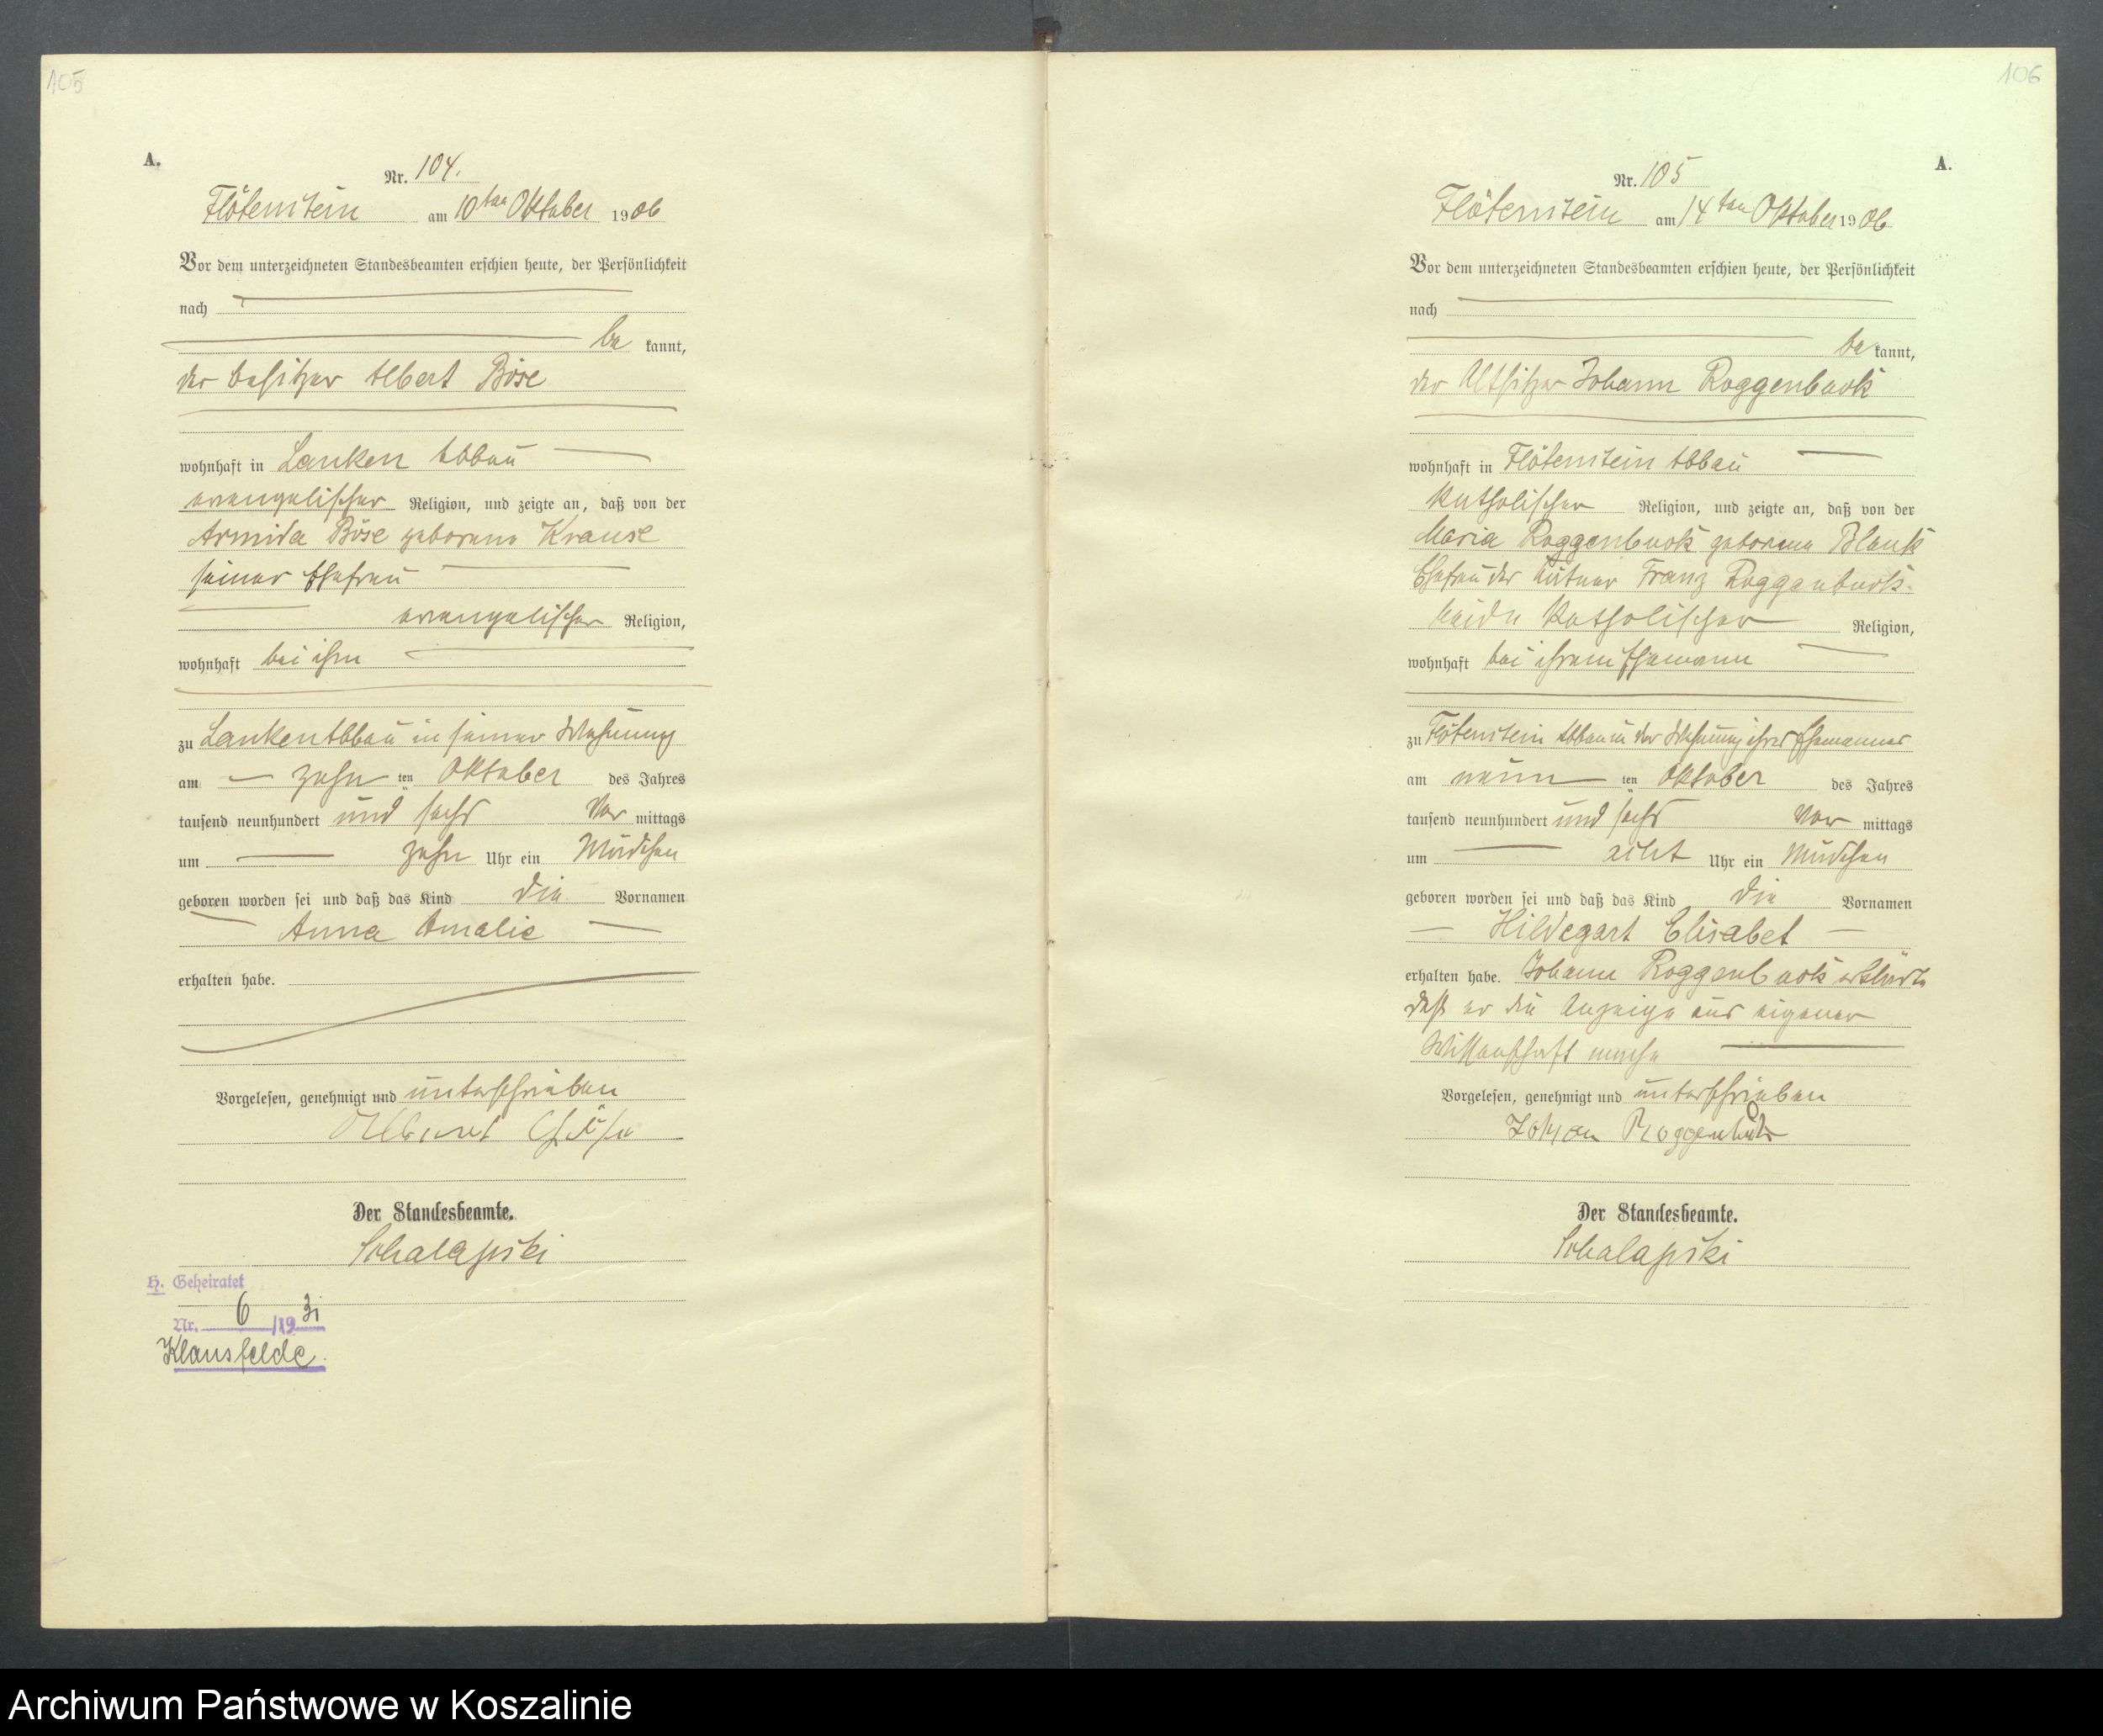 105
A.
Nr. 104.
Flötenstein am 10ten Oktober 1906
Vor dem unterzeichneten Standesbeamten erschien heute, der Persönlichkeit
nach
be kannt,
der Besitzer Albert Böse
wohnhaft in Lanken Abbau
evangelischer Religion, und zeigte an, daß von der
Armida Böse geborene Krause
seiner Ehefrau
evangelischer Religion,
wohnhaft bei ihm
zu Lanken Abbau in seiner Wohnung
am zehn ten Oktober des Jahres
tausend neunhundert und sechs Vor mittags
um zehn Uhr ein Mädchen
geboren worden sei und daß das Kind die Vornamen
Anna Amalie
erhalten habe.
Vorgelesen, genehmigt und unterschrieben
Albert Böse
Der Standesbeamte.
Schalapski
H. Geheiratet
Nr. 6/1931
Klausfelde.
106
A.
Nr. 105
Flötenstein am 14ten Oktober 1906
Vor dem unterzeichneten Standesbeamten erschien heute, der Persönlichkeit
nach
be kannt,
der Altsitzer Johann Roggenbuck
wohnhaft in Flötenstein Abbau
katholischer Religion, und zeigte an, daß von der
Maria Roggenbuck geborene Blank
Ehefrau der Franz Roggenbuck
beide katholischer Religion,
wohnhaft bei ihrem Ehemann
zu Flötenstein Abbau in der Wohnung ihres Ehemannes
am neun ten Oktober des Jahres
tausend neunhundert und sechs Vor mittags
um acht Uhr ein Mädchen
geboren worden sei und daß das Kind die Vornamen
Hildegart Elisabet
erhalten habe. Johann Roggenbuck erklärte
daß er die Anzeige aus eigener
Wissenschaft mache
Vorgelesen, genehmigt und unterschrieben
Johan Roggenbuck
Der Standesbeamte.
Schalapski
Archiwum Państwowe w Koszalinie